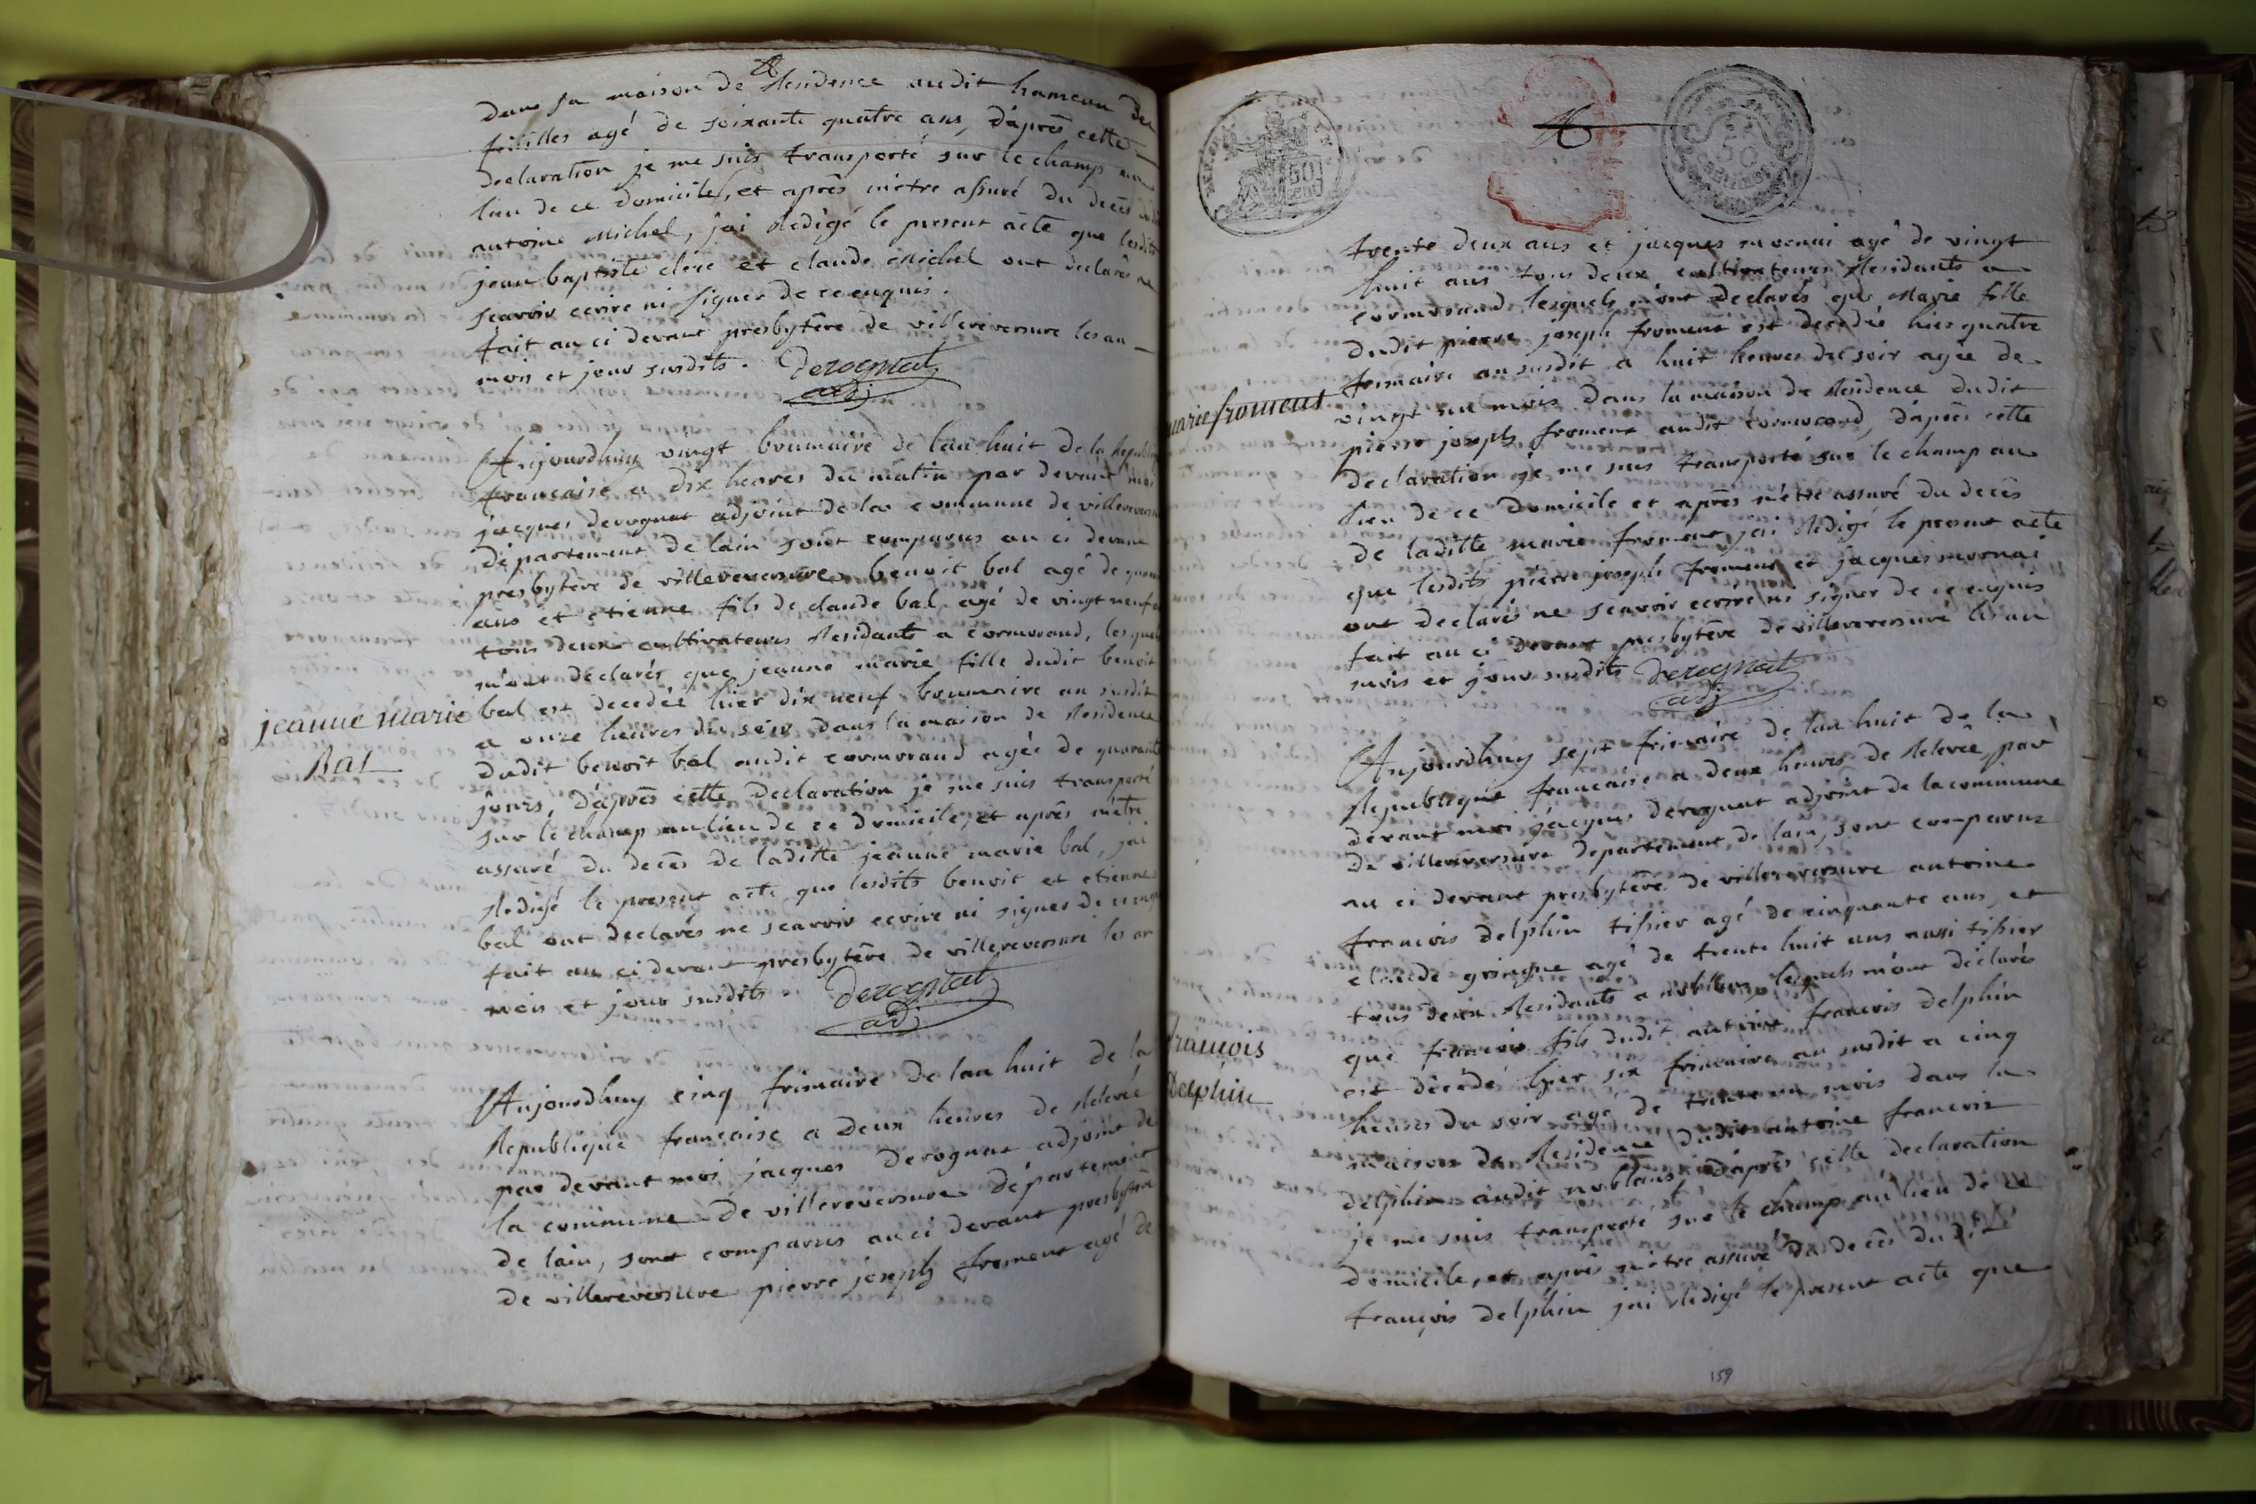 dans sa maison de Residence audit hameau des
feililles agé de soixante quatre ans, d'après cette
declaration je me suis transporté sur le champ au
lieu de ce domicile, et après m'etre assuré du decès dudit
antoine Michel, j'ai Redigé le present acte que lesdits
jean baptiste clere et claude Michel ont declarés ne
scavoir ecrire ni signer de ce enquis.
fait au ci devant presbytère de villereversure les an
mois et jour susdits. Derognat
adj
Aujourdhuy vingt brumaire de l'an huit de la Republique
francaise a dix heures du matin par devant moi
jacques derognat adjoint de la commune de villereversure
departement de lain sont comparus au ci devant
presbytère de villereversure benoit bal agé de
ans et etienne fils de claude bal agé de vingt neuf
tous deux cultivateurs Residants a cormorand, lesquels
m'ont declarés que jeanne marie fille dudit benoit
jeanne marie
Bal
bal est decedée hier dix neuf brumaire an susdit
a onze heures du soir dans la maison de Residence
dudit benoit bal audit cormorand agée de quarante
jours, d'après cette declaration je me suis transporté
sur le champ au lieu de ce domicile, et après m'etre
assuré du decès de laditte jeanne marie bal, j'ai
Redigé le present acte que lesdits benoit et etienne
bal ont declarés ne scavoir ecrire ni signer de ce enquis
fait au ci devant presbytère de villereversure les an
mois et jour susdits. Derognat
adj
Aujourdhuy cinq frimaire de lan huit de la
Republique francaise a deux heures de Relevée
par devant moi jacques derognat adjoint de
la commune de villereversure departement
de lain, sont comparus au ci devant presbytère
de villereversure pierre joseph froment agé de
50
50
CENTIMES
trente deux ans et jacques mornai agé de vingt
huit ans tous deux cultivateurs Residants a
cormorand, lesquels m'ont declarés que Marie fille
dudit pierre joseph froment est decedée hier quatre
frimaire an susdit a huit heures du soir agée de
marie froment
vingt un mois dans la maison de Residence dudit
pierre joseph froment audit cormorand, d'après cette
declaration je me suis transporté sur le champ au
lieu de ce domicile et après m'etre assuré du decès
de laditte marie froment, j'ai Redigé le present acte
que lesdits pierre joseph froment et jacques mornai
ont declarés ne scavoir ecrire ni signer de ce enquis
fait au ci devant presbytère de villereversure les an
mois et jour susdits Derognat
adj
Aujourdhuy sept frimaire de lan huit de la
Republique francaise a deux heures de Relevée, par
devant moi jacques derognat adjoint de la commune
de villereversure departement de lain, sont comparus
au ci devant presbytère de villereversure antoine
francois delphin tissier agé de cinquante ans, et
claude gringue agé de trente huit ans aussi tissier
tous deux Residants a noblans lesquels m'ont declarés
que francois fils dudit antoine francois delphin
francois
Delphin
est décédé hier six frimaire an susdit a cinq
heures du soir agé de trente un mois dans la
maison de Residence dudit antoine francois
delphin audit noblans, d'après cette declaration
je me suis transporté sur le champ au lieu de ce
domicile, et après m'etre assuré du decès dudit
françois delphin j'ai Redigé le present acte que
159